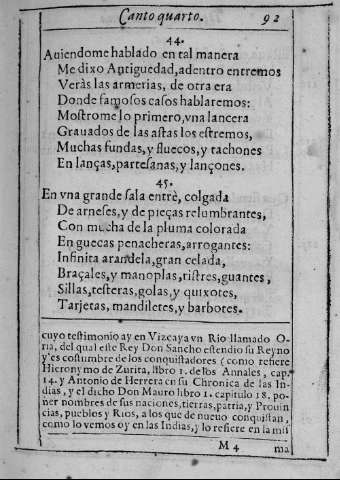 Canto quarto. 92
44.
Auiendome hablado en tal manera
Me dixo Antiguedad, adentro entremos
Veràs las armerias, de otra era
Donde famosos casos hablaremos:
Mostrome lo primero, vna lancera
Grauados de las astas los estremos,
Muchas fundas, y fluecos, y tachones
En lanças, partesanas, y lançones.
45.
En vna grande sala entrè, colgada
De arneses, y de pieças relumbrantes,
Con mucha de la pluma colorada
En guecas penacheras, arrogantes:
Infinita arandela, gran celada,
Braçales, y manoplas, ristres, guantes,
Sillas, testeras, golas, y quixotes,
Tarjetas, mandiletes, y barbotes.
cuyo testimonio ay en Vizcaya vn Rio llamado O-
ria, del qual este Rey Don Sancho estendio su Reyno
y es costumbre de los conquistadores (como refiere
Hieronymo de Zurita, libro 1. de los Annales, cap.
14. y Antonio de Herrera en su Chronica de las In-
dias, y el dicho Don Mauro libro 1. capitulo 18. po-
ner nombres de sus naciones, tierras, patria, y Prouin
cias, pueblos y Rios, a los que de nueuo conquistan,
como lo vemos oy en las Indias, y lo refiere en la mis
M 4 ma